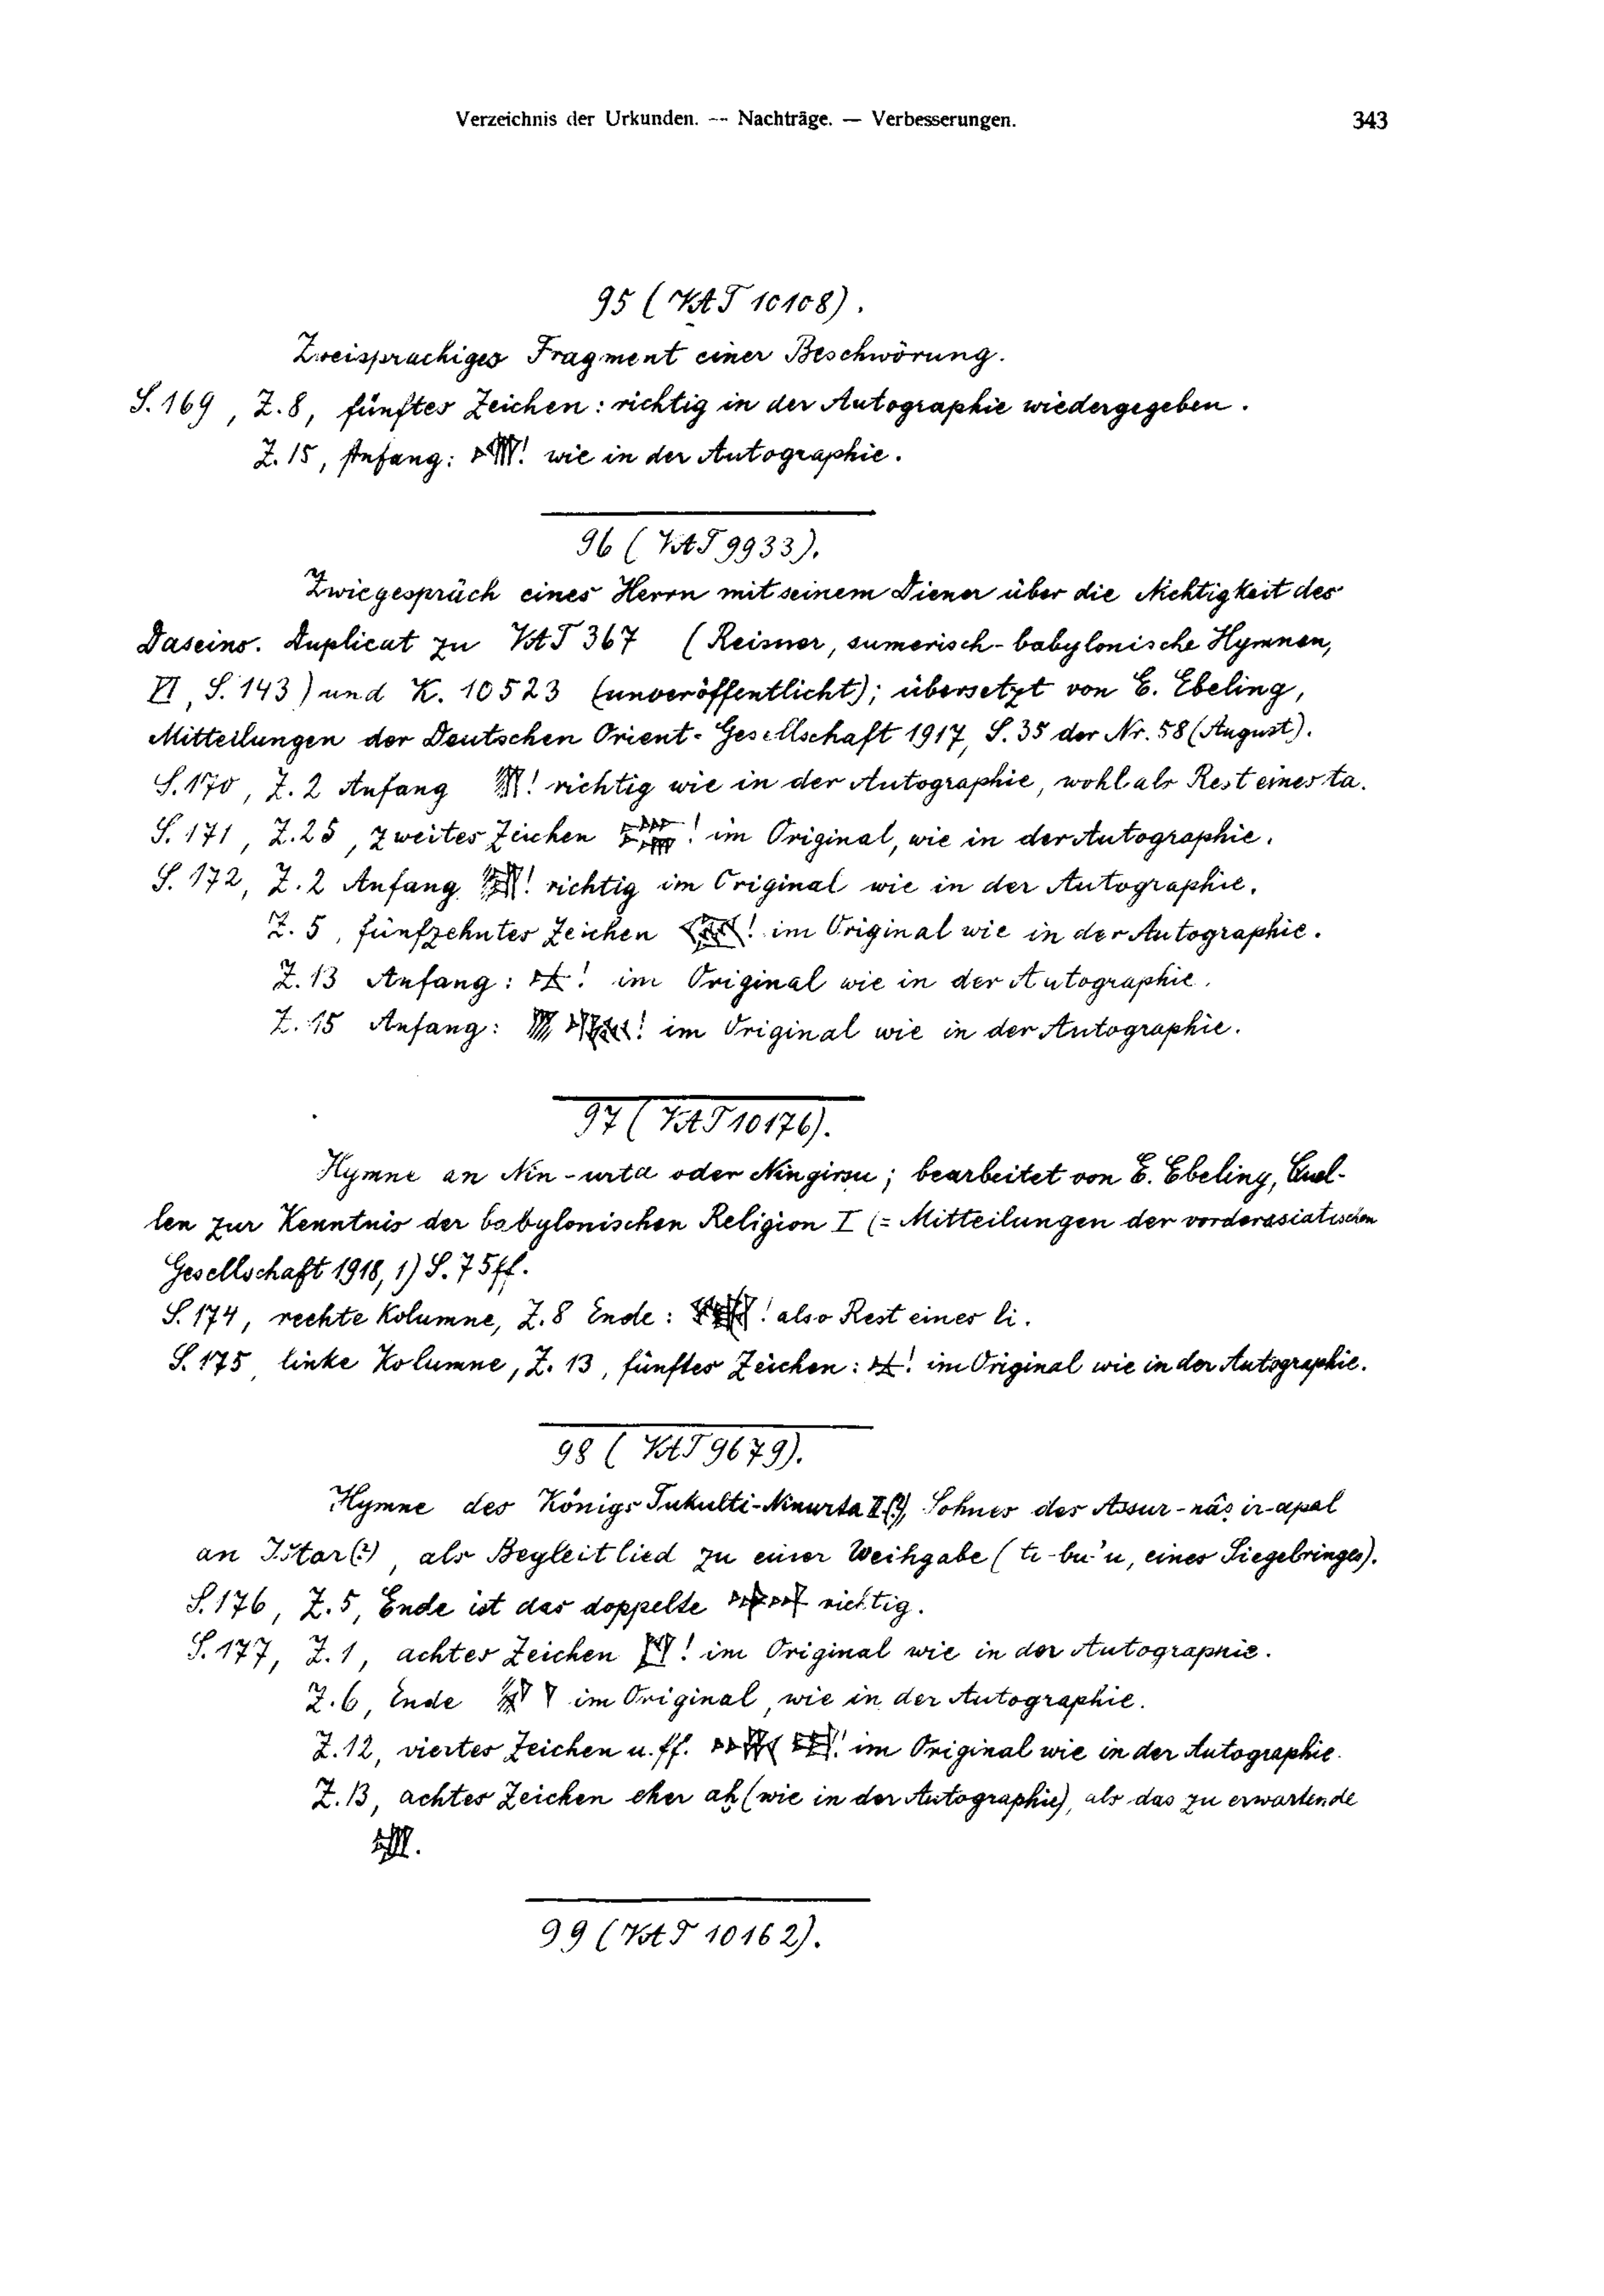 Verzeichnis der Urkunden. — Nachträge. — Verbesserungen. 343
95 (VAT 10108).
Zweisprachiges Fragment einer Beschwörung.
S. 169, Z. 8, fünftes Zeichen: richtig in der Autographie wiedergegeben.
Z. 15, Anfang: ! wie in der Autographie.
96 (VAT 9933).
Zwiegespräch eines Herrn mit seinem Diener über die Nichtigkeit des
Daseins. Duplicat zu VAT 367 (Reisner, sumerisch-babylonische Hymnen,
VI, S. 143) und K. 10523 (unveröffentlicht); übersetzt von E. Ebeling,
Mitteilungen der Deutschen Orient-Gesellschaft 1917, S. 35 der Nr. 58 (August).
S. 170, Z. 2 Anfang ! richtig wie in der Autographie, wohl als Rest eines ta.
S. 171, Z. 25, zweites Zeichen ! im Original, wie in der Autographie.
S. 172, Z. 2 Anfang ! richtig im Original wie in der Autographie.
Z. 5, fünfzehntes Zeichen ! im Original wie in der Autographie.
Z. 13 Anfang: ! im Original wie in der Autographie.
Z. 15 Anfang: ! im Original wie in der Autographie.
97 (VAT 10176).
Hymne an Nin-urta oder Ningirsu; bearbeitet von E. Ebeling, Quel-
len zur Kenntnis der babylonischen Religion I (= Mitteilungen der vorderasiatischen
Gesellschaft 1918, 1) S. 75ff.
S. 174, rechte Kolumne, Z. 8 Ende: ! also Rest eines li.
S. 175, linke Kolumne, Z. 13, fünftes Zeichen: ! im Original wie in der Autographie.
98 (VAT 9679).
Hymne des Königs Tukulti-Ninurta II (?), Sohnes des Assur-nâṣir-apal
an Ištar (?), als Begleitlied zu einer Weihgabe (ti-bu-'u, eines Siegelringes).
S. 176, Z. 5, Ende ist das doppelte richtig.
S. 177, Z. 1, achtes Zeichen ! im Original wie in der Autographie.
Z. 6, Ende im Original, wie in der Autographie.
Z. 12, viertes Zeichen u. ff. ! im Original wie in der Autographie.
Z. 13, achtes Zeichen eher aḫ (wie in der Autographie), als das zu erwartende
99 (VAT 10162).